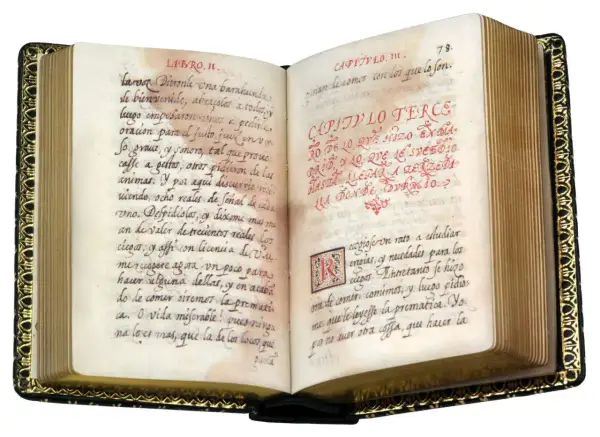 LIBRO. II.
Dieronle una barahunda
de bienvenido, abraçolos a todos, y
luego empeçaron unos a pedirle
oracion para el justo juez en ver
so, grave, y sonoro, tal que provo
casse a gestos, otros pidieron de las
animas. Y por aqui discurrio reci
viendo, ocho reales de señal de cada
uno. Despidiolos, y dixome mas me
an de valer de trecientos reales los
ciegos, y assi con licencia de V.m.
me recogere agora un poco para
hacer alguna dellas, y en acaba
do de comer oiremos la premati
ca. O vida miserable! pues ningu
na lo es mas, que la de los locos que
CAPITVLO. III. 78.
nan de comer con los que lo son.
CAPITVLO TERCE-
RO DE LO QVE HIZO EN MA-
DRID, Y LO QVE LE SVCEDIO
HASTA LLEGAR A CERCEDI-
LLA DONDE DVRMIO.
Recogiose un rato a estudiar
eregias, y necedades para los
ciegos. Entretanto se hizo
ora de comer comimos, y luego pidio
me que le leyesse la prematica. Yo
por no aver otra cossa, que hacer la